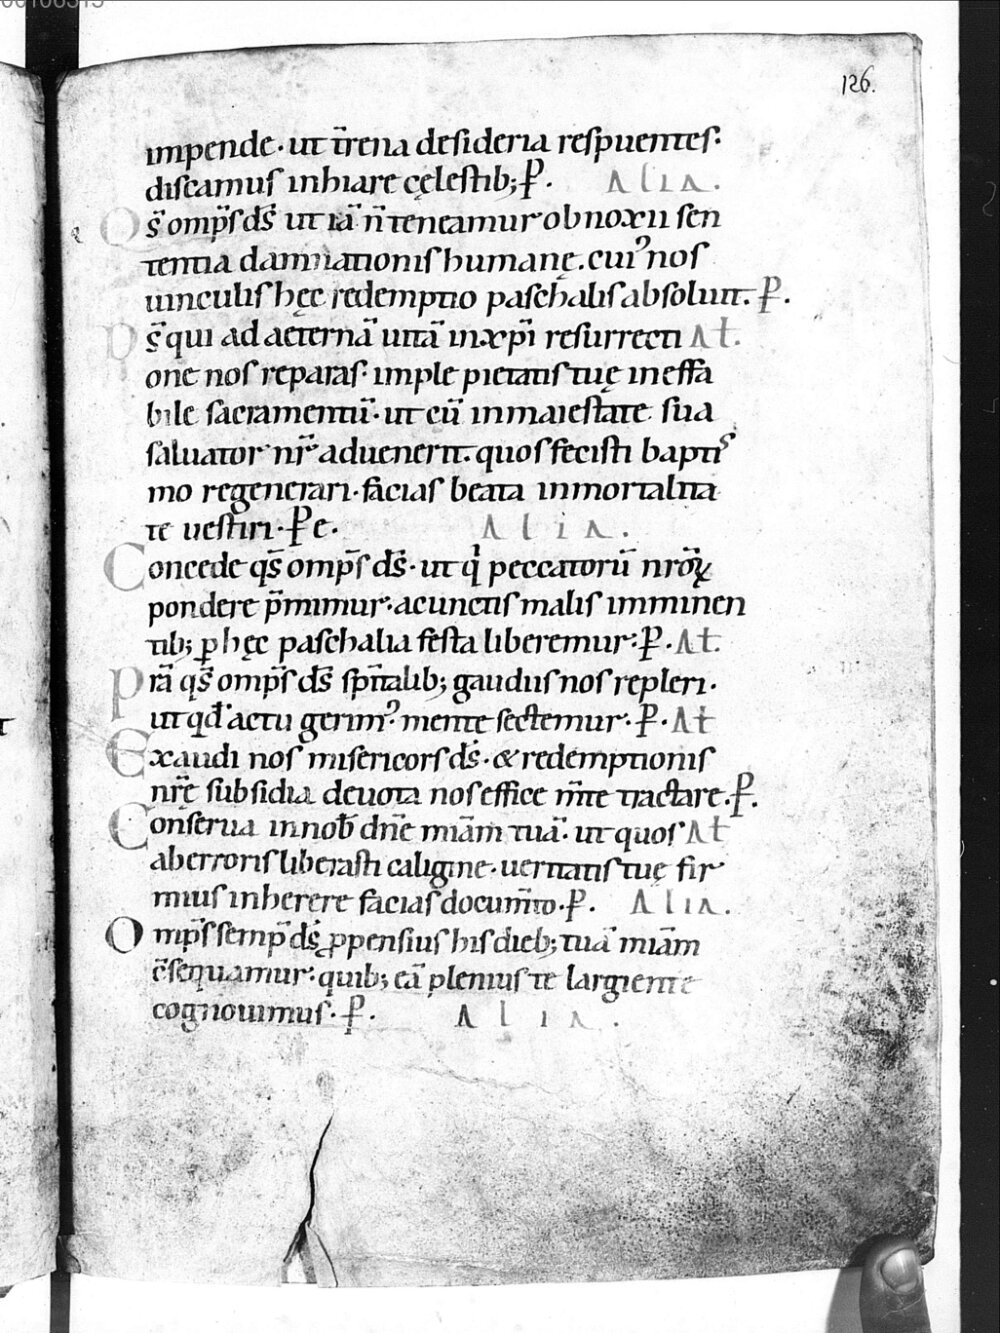 126.
impende· ut t̄rena desideria respuentes·
discamus inhiare cęlestib; P̱. ALIA.
Qs̄ omp̄s ds̄ ut iā n̄ teneamur obnoxii sen
tentia damnationis humanę. cui᾿ nos
uinculis hęc redemptio paschalis absoluit. P̱.
Ds̄ qui ad aeternā uitā in xp̄i resurrecti At.
one nos reparas· imple pietatis tuę ineffa
bile sacramentū· ut cū in maiestate sua
saluator nr̄ aduenerit. quos fecisti baptis
mo regenerari· facias beata inmortalita
te uestiri· P̱e. ALIA.
Concede qs̄ omp̄s ds̄· ut qi peccatorū nr̄oꝝ
pondere p̄mimur· a cunctis malis imminen
tib; ꝑ hęc paschalia festa liberemur· P̱. At.
Prā qs̄ omp̄s ds̄ sp̄italib; gaudiis nos repleri·
ut qd̄ actu gerim᾿ mente sectemur· P̱. At
Exaudi nos misericors ds̄· & redemptionis
nr̄ę subsidia deuota nos effice m̄te tractare. P̱.
Conserua in nob̄ dn̄e miām tuā· ut quos At
ab erroris liberasti caligine· ueritatis tuę fir
mius inherere facias docum̄to· P̱. ALIA.
Omp̄s semp̄ ds̄ ꝓpensius his dieb; tuā miām
c̄sequamur· quib; eā plenius te largiente
cognouimus· P̱. ALIA.